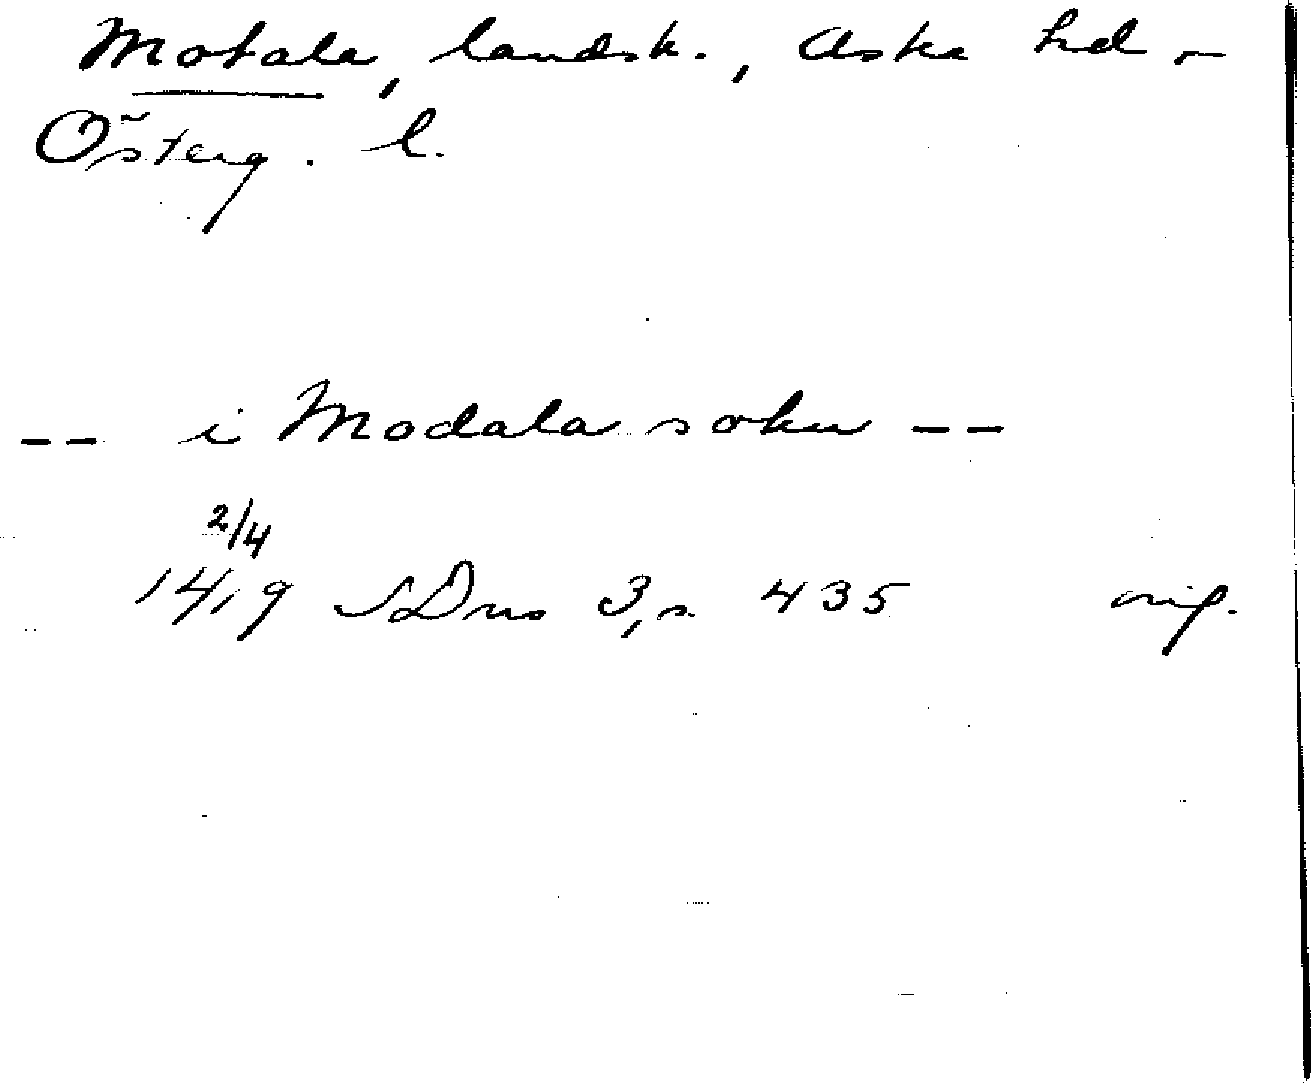 Motala, landsk., Aska hd,
Österg. l.
-- i Modala sokn --
2/4
1419 SDns 3, s. 435 orig.